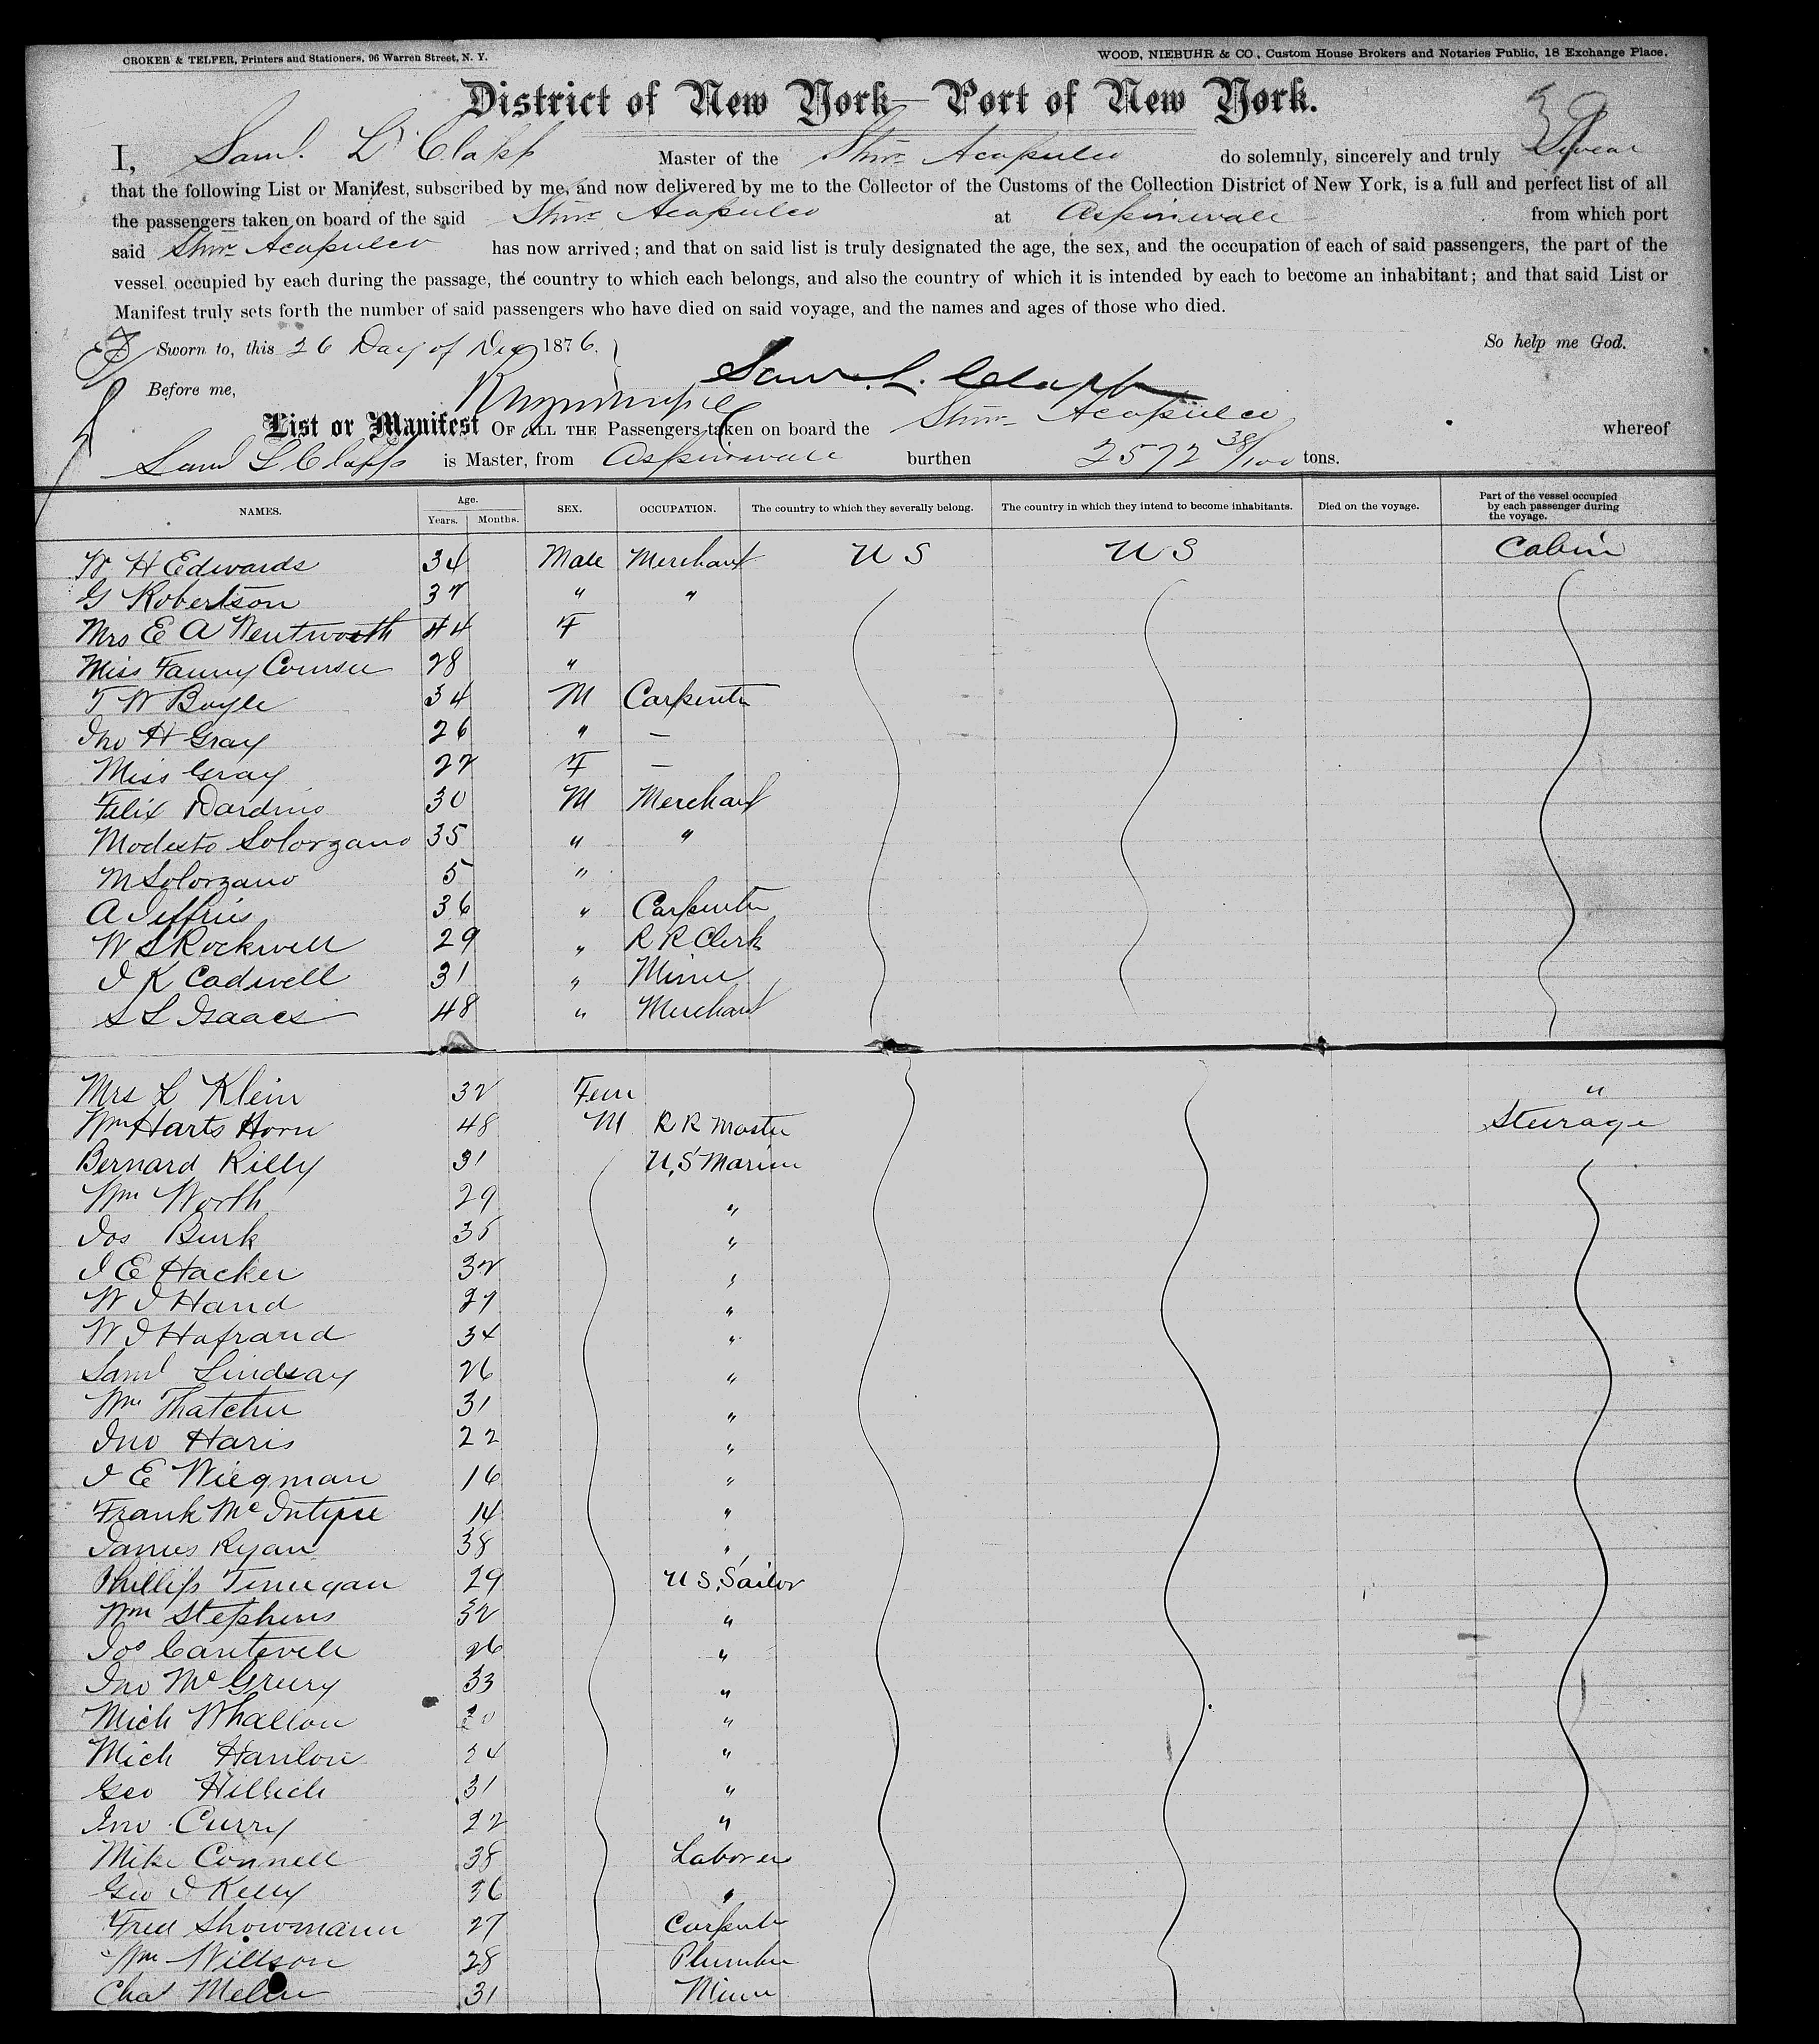 CROKER & TELFER, Printers and Stationers, 96 Warren Street, N. Y.
WOOD, NIEBUHR & CO., Custom House Brokers and Notaries Public, 18 Exchange Place.
District of New York—Port of New York.
I, Saml. L Clapp Master of the Stmr Acapulco do solemnly, sincerely and truly Swear
that the following List or Manifest, subscribed by me, and now delivered by me to the Collector of the Customs of the Collection District of New York, is a full and perfect list of all
the passengers taken on board of the said Stmr Acapulco at Aspinwall from which port
said Stmr Acapulco has now arrived; and that on said list is truly designated the age, the sex, and the occupation of each of said passengers, the part of the
vessel occupied by each during the passage, the country to which each belongs, and also the country of which it is intended by each to become an inhabitant; and that said List or
Manifest truly sets forth the number of said passengers who have died on said voyage, and the names and ages of those who died.
Sworn to, this 26 Day of Dec 1876. So help me God.
Before me, Saml. L. Clapp
List or Manifest OF ALL THE Passengers taken on board the Stmr Acapulco whereof
Saml L Clapp is Master, from Aspinwall burthen 2572 38/100 tons.
NAMES. Age. Years. Months. SEX. OCCUPATION. The country to which they severally belong. The country in which they intend to become inhabitants. Died on the voyage. Part of the vessel occupied by each passenger during the voyage.
W H Edwards 34 Male Merchant U S U S Cabin
G Robertson 37 " "
Mrs E A Wentworth 44 F
Miss Fanny 28 "
T W Boyle 34 M Carpenter
Jno H Gray 26 " —
Miss Gray 22 F —
Felix Dardino 30 M Merchant
Modesto Solorzano 35 " "
M Solorzano 5 "
A Jeffries 36 " Carpenter
W S Rockwell 29 " R R Clerk
J K Cadwell 31 " Miner
S L Isaacs 48 " Merchant
Mrs L Klein 32 Fem "
Wm Harts Horn 48 M R R Master Steerage
Bernard Rilly 31 U.S Marine
Wm Worth 29 "
Jos Burk 35 "
J E Hacker 32 "
W J Hand 27 "
W J Hafrand 34 "
Saml Lindsay 26 "
Wm Thatcher 31 "
Jno Haris 22 "
J E Wiegman 16 "
Frank McIntyre 14 "
James Ryan 38 "
Phillip Finnegan 29 U.S. Sailor
Wm Stephens 32 "
Jos Cantwell 26 "
Jno McGreery 33 "
Mich Whallon "
Mich Hanlon 34 "
Geo 31 "
Jno Curry 22 "
Mike Connell 38 Laborer
Geo J Kelly 36 "
Fred Showmann 27 Carpenter
Wm Willson 28 Plumber
Chas 31 Miner